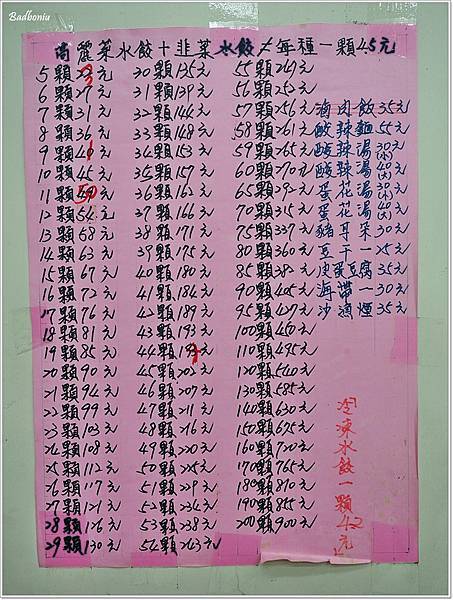 Badboniu
高麗菜水餃+韭菜水餃/每種一顆4.5元
5顆23元
6顆27元
7顆31元
8顆36元
9顆41元
10顆45元
11顆50元
12顆54元
13顆58元
14顆63元
15顆67元
16顆72元
17顆76元
18顆81元
19顆85元
20顆90元
21顆94元
22顆99元
23顆103元
24顆108元
25顆112元
26顆117元
27顆121元
28顆126元
29顆130元
30顆135元
31顆139元
32顆144元
33顆148元
34顆153元
35顆157元
36顆162元
37顆166元
38顆171元
39顆175元
40顆180元
41顆184元
42顆189元
43顆193元
44顆197元
45顆202元
46顆207元
47顆211元
48顆216元
49顆220元
50顆225元
51顆229元
52顆234元
53顆238元
54顆243元
55顆247元
56顆252元
57顆256元
58顆261元
59顆265元
60顆270元
65顆292元
70顆315元
75顆337元
80顆360元
85顆382元
90顆405元
95顆427元
100顆450元
110顆495元
120顆540元
130顆585元
140顆630元
150顆675元
160顆720元
170顆765元
180顆810元
190顆855元
200顆900元
滷肉飯35元
酸辣麵55元
酸辣湯30元(小)
酸辣湯40元(大)
蛋花湯30元(小)
蛋花湯40元(大)
豬耳朵30元
豆干一25元
皮蛋豆腐35元
海帶一30元
沙滴煙35元
冷凍水餃一顆4.2元